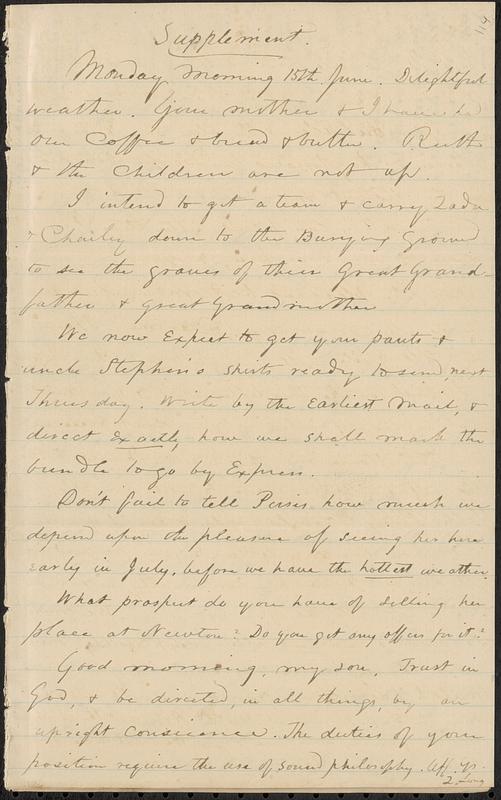 114
Supplement.
Monday morning 15th June. Delightful
weather. Your mother & I have had
our Coffee & bread & butter. Ruth
& the Children are not up.
I intend to get a team & carry Zada
& Charley down to the Burying Ground
to see the graves of their Great Grand-
father & Great Grandmother
We now Expect to get your pants &
uncle Stephen's shirts ready to send, next
Thursday. Write by the Earliest Mail, &
direct Exactly, how we shall mark the
bundle to go by Express.
Don't fail to tell Persis how much we
depend upon the pleasure of seeing her here
early in July, before we have the hottest weather.
What prospect do you have of selling her
place at Newton? Do you get any offers for it?
Good morning, my son, Trust in
God, & be directed, in all things, by an
upright Conscience. The duties of your
position require the use of sound philosophy. Aff. Yr.
Z. Long